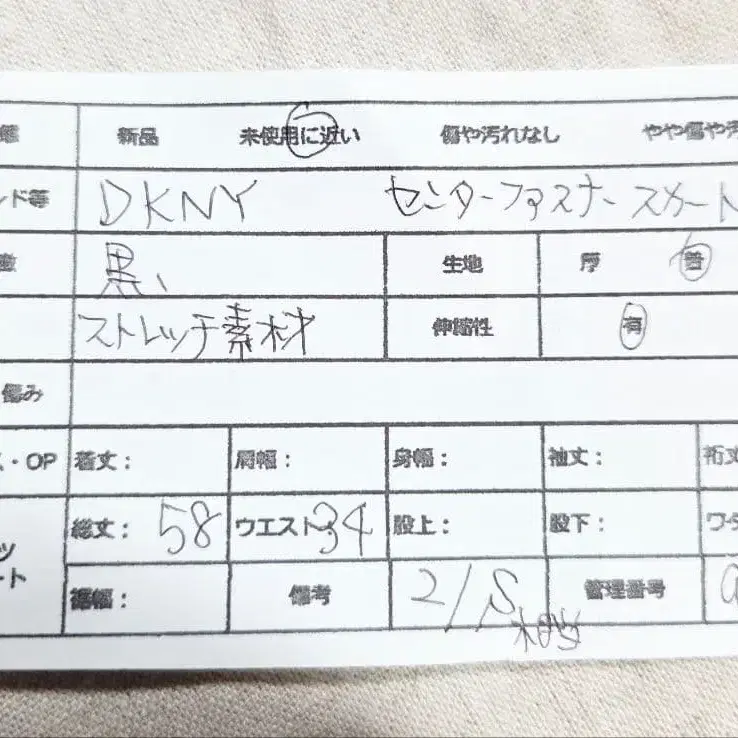 態 新品 未使用に近い 傷や汚れなし やや傷や汚
ンド等 DKNY センターファスナースカート
徴 黒、 生地 厚 普
ストレッチ素材 伸縮性 有
傷み
ス・OP 着丈： 肩幅： 身幅： 袖丈： 裄丈
総丈：58 ウエスト：34 股上： 股下： ワタ
ツ
ート
裾幅： 備考 2/S相当 管理番号